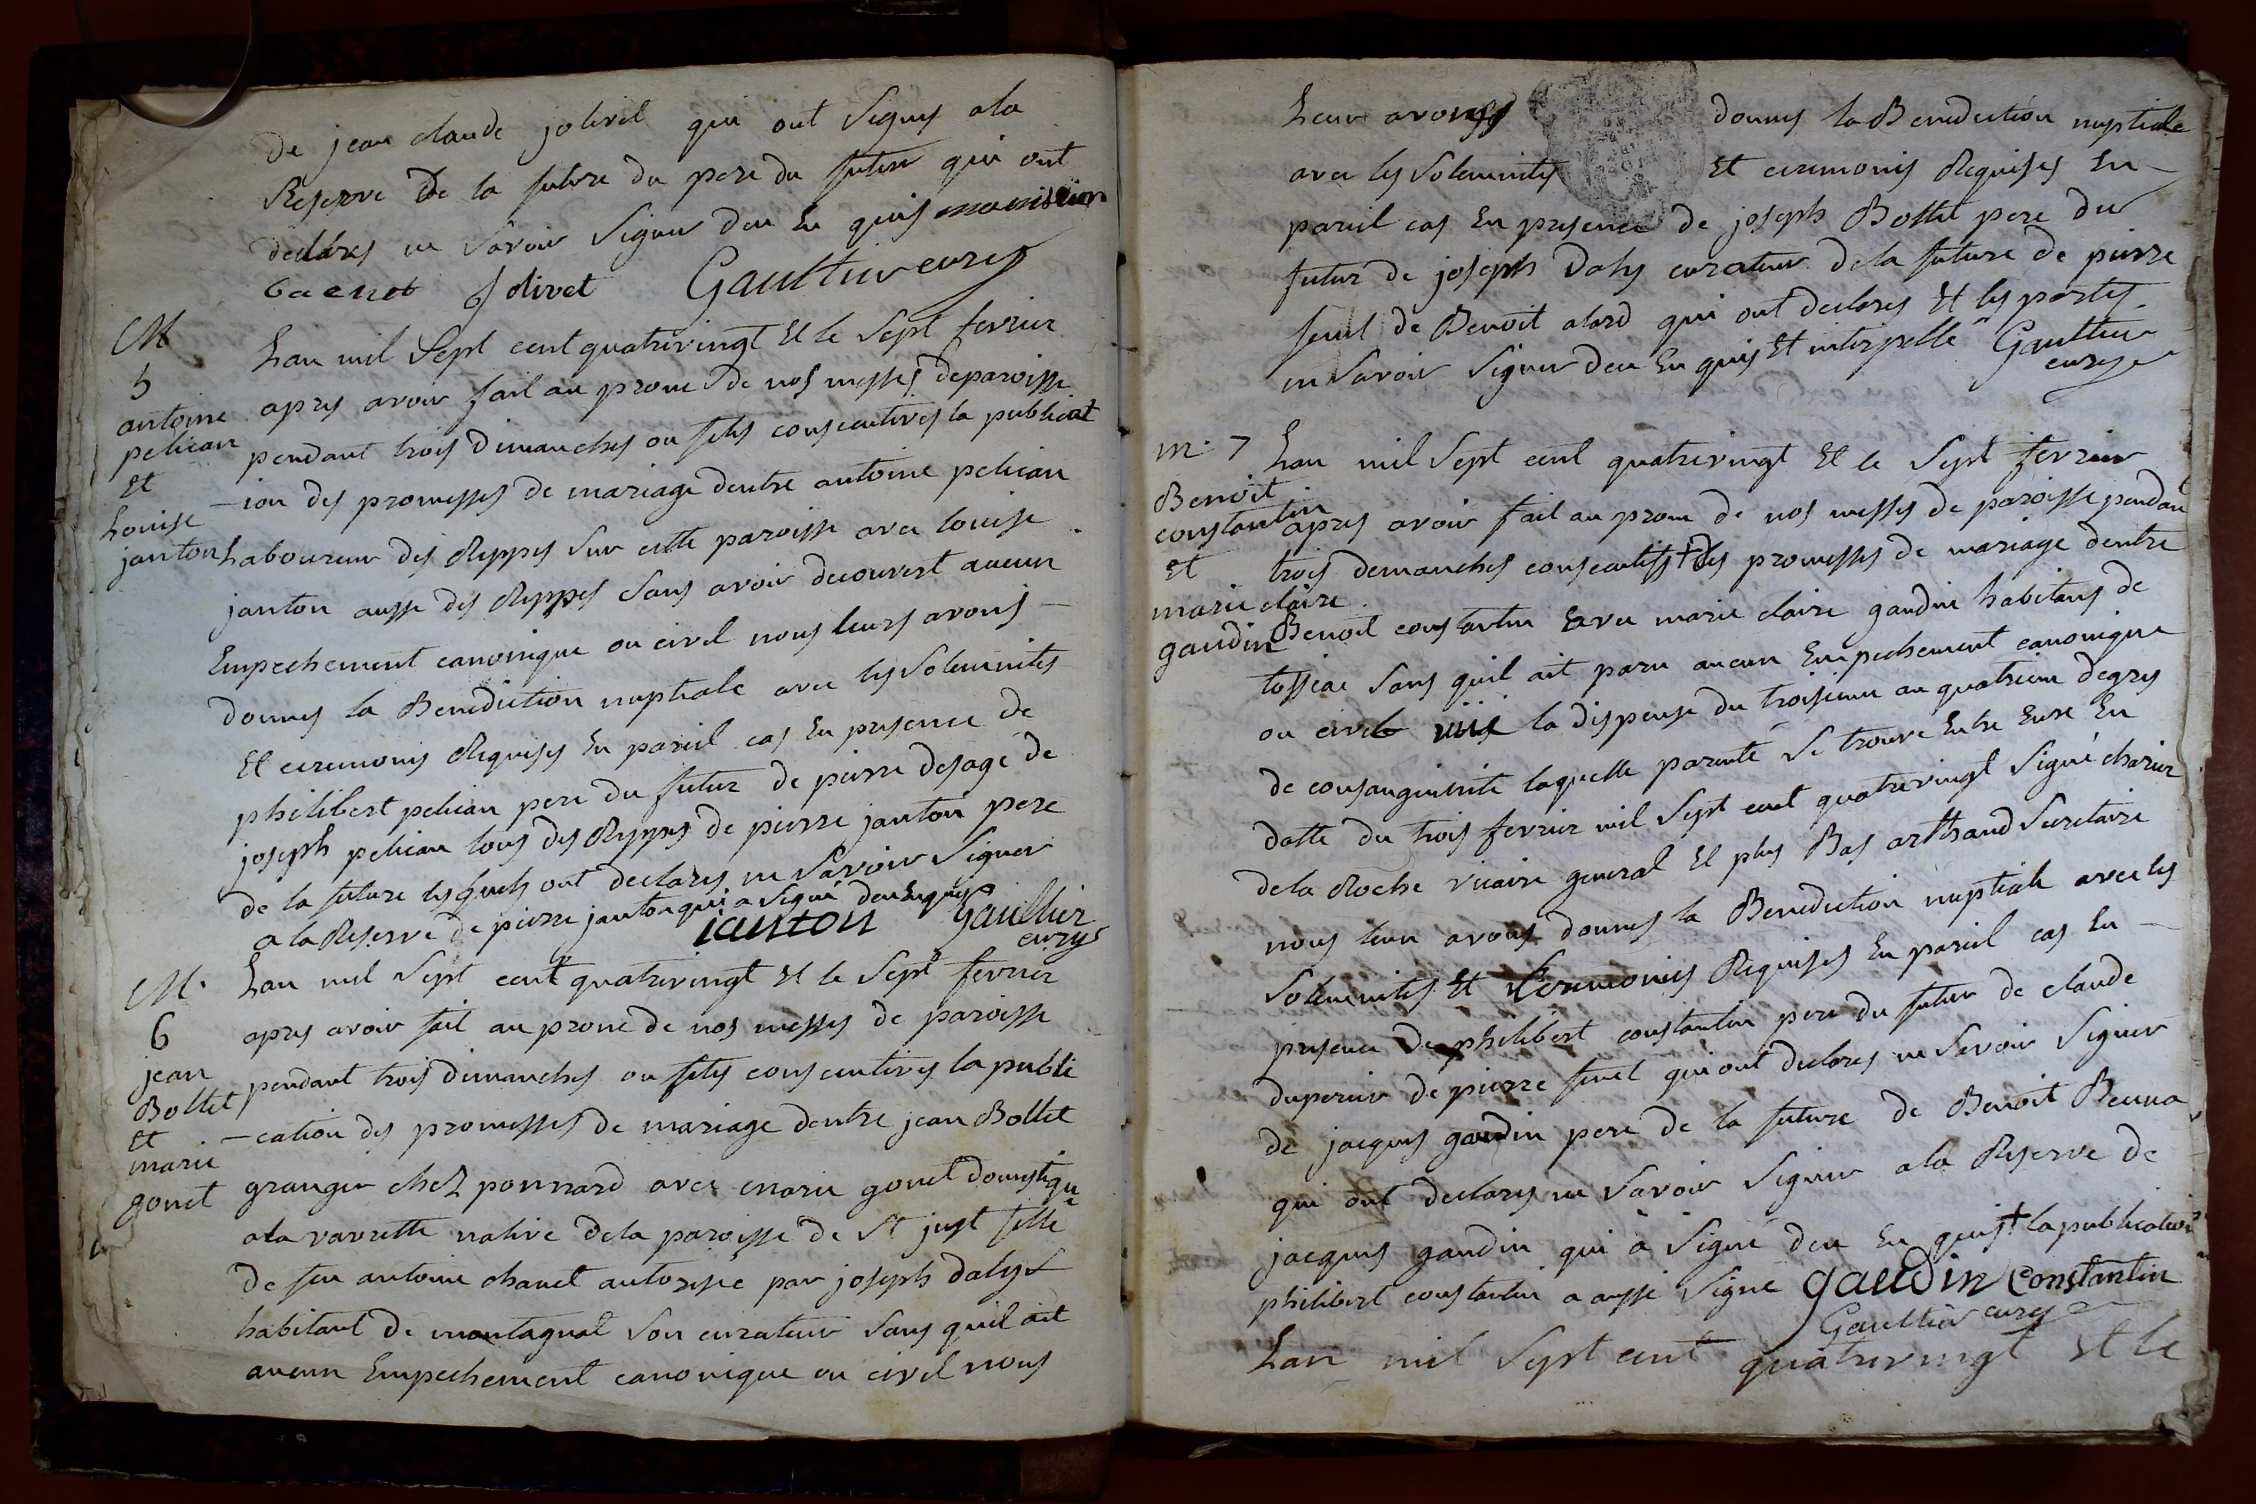 de jean claude jolivet qui ont signes a la
Reserve de la future du pere du futur qui ont
declares ne savoir signer deu en quis
Gacnot Jolivet Gaulthier curez
M
5
antoine
pelican
et
Louise
janton
Lan mil Sept cent quatrevingt et le sept fevrier
apres avoir fait au prone de nos messes de paroisse
pendant trois dimanches ou fetes consecutives la publicat
-ion des promesses de mariage dentre antoine pelican
Laboureur des Reppes sur cette paroisse avec louise
janton aussi des Reppes sans avoir decouvert aucun
Empechement canonique ou civil nous leurs avons -
donnes la Benediction nuptiale avec les solemnites
Et ceremonies Requises En pareil cas En presence de
philibert pelican pere du futur de pierre desage de
joseph pelican tous des Reppes de pierre janton pere
de la future lesquels ont declares ne savoir signer
a la Reserve de pierre janton qui a signé deu Enquis
janton Gaulthier
curez
M.
6
jean
Bollet
et
marie
gonet
Lan mil sept cent quatrevingt et le sept fevrier
apres avoir fait au prone de nos messes de paroisse
pendant trois dimanches ou fetes consecutives la publi
-cation des promesses de mariage dentre jean Bollet
granger chez ponnard avec marie gonet domestique
a la vavrette native de la paroisse de st just fille
de feu antoine chanel autorisée par joseph daly
habitant de montagnat son curateur sans quil ait
aucun Empechement canonique ou civil nous
Leur avons donnes la Benediction nuptiale
avec les solemnites Et ceremonies Requises En -
pareil cas En presence de joseph Bollet pere du
futur de joseph Daly curateur de la future de pierre
finet de Benoit alard qui ont declares Et les parties
ne savoir signer deu En quis Et interpellé Gaulthier
curez
m. 7
Benoit
constantin
et
marie claire
gaudin
Lan mil Sept cent quatrevingt Et le Sept fevrier
apres avoir fait au prone de nos messes de paroisse pendant
trois demanches consecutifs + des promesses de mariage dentre
Benoit constantin avec marie claire gaudin habitans de
tossiac sans quil ait paru aucun Empechement canonique
ou civil la dispense du troisieme au quatrieme degres
de consanguinité laquelle parenté se trouve Entre Eux En
datte du trois fevrier mil sept cent quatrevingt signé charier
de la Roche vicaire general Et plus Bas arthaud Secretaire
nous leur avons donnes la Benediction nuptiale avec les
solemnites Et Ceremonies Requises En pareil cas En -
presence de philibert constantin pere du futur de claude
duperier de pierre finet qui ont declares ne savoir signer
de jacques gaudin pere de la future de Benoit
qui ont declares ne savoir signer a la Reserve de
jacques gaudin qui a signé deu En quis + la publication
philibert constantin a aussi signé gaudin Constantin
Gaulthier curez
Lan mil Sept cent quatrevingt Et le